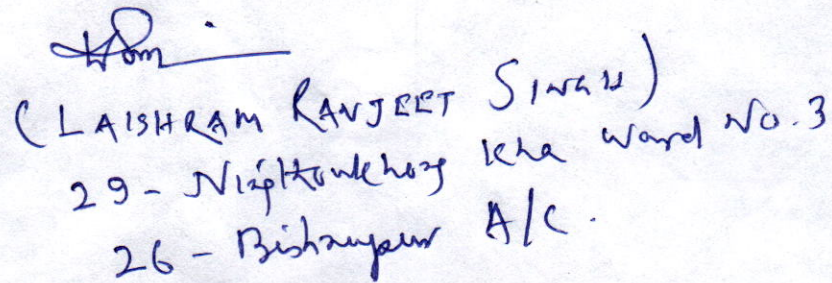 (LAISHRAM RANJEET SINGH)
29 - Ningthoukhong Kha Ward No. 3
26 - Bishnupur A/C.